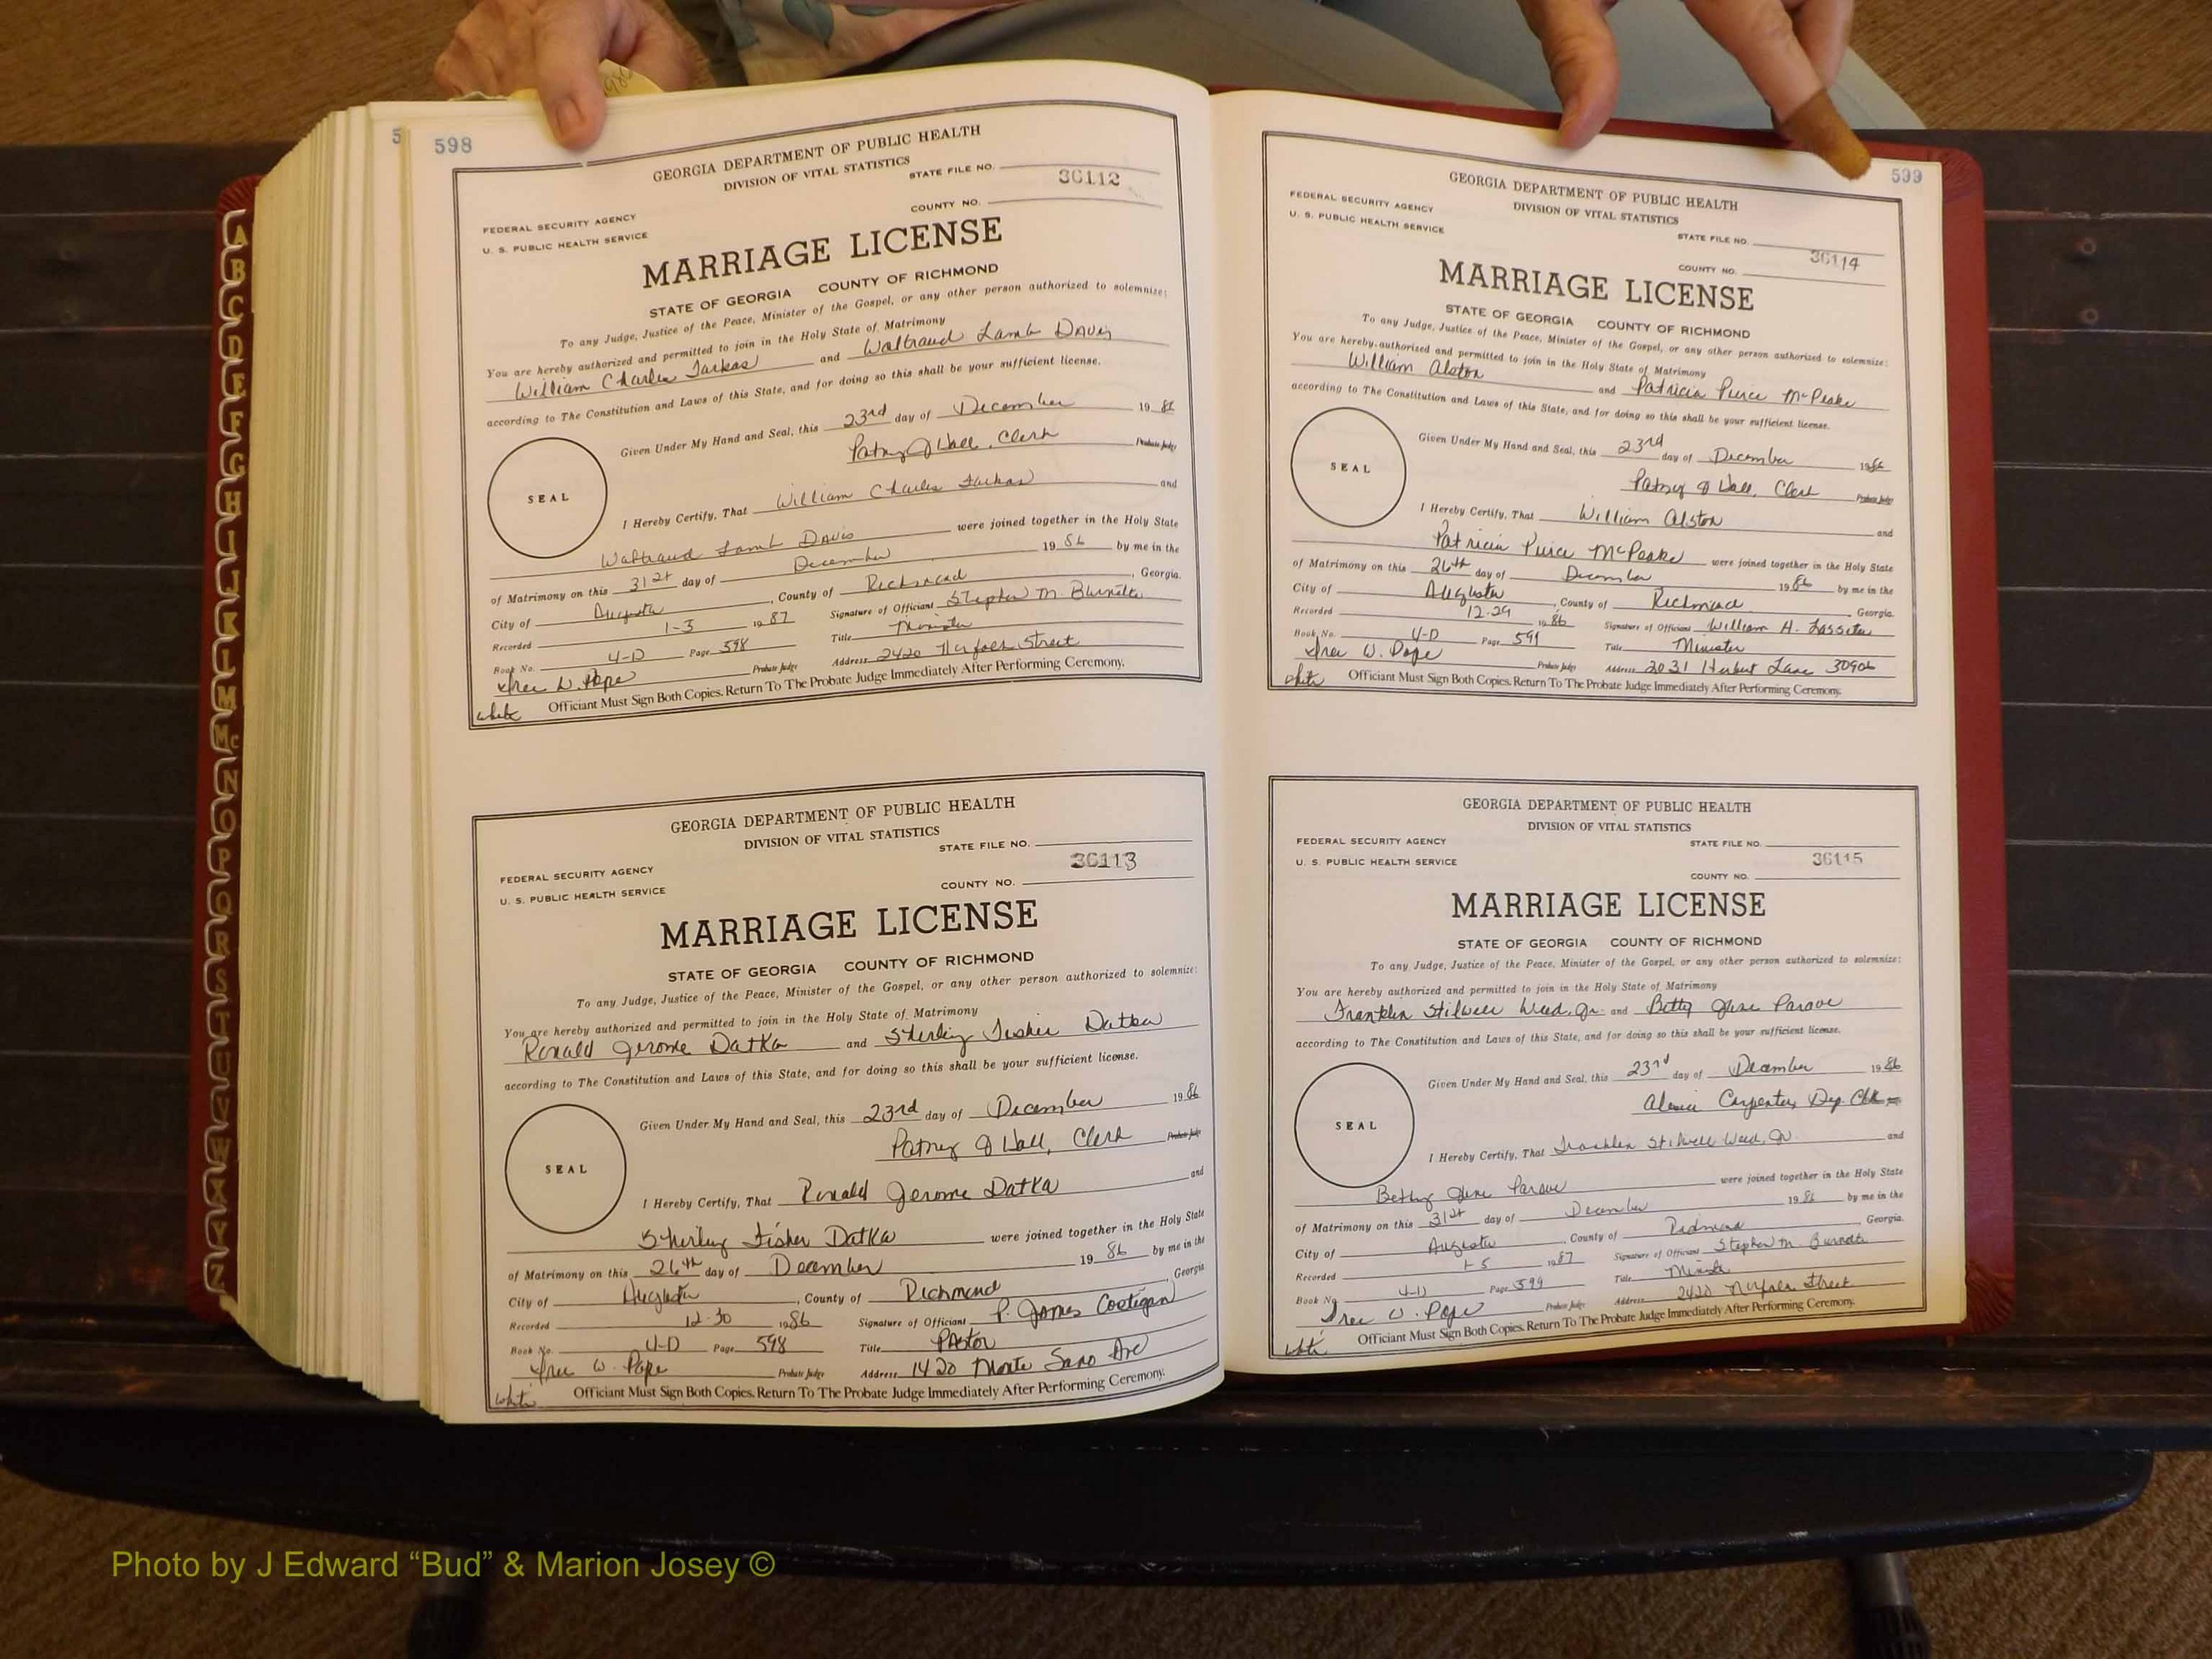 598
GEORGIA DEPARTMENT OF PUBLIC HEALTH
DIVISION OF VITAL STATISTICS
STATE FILE NO.
36112
FEDERAL SECURITY AGENCY
COUNTY NO.
U. S. PUBLIC HEALTH SERVICE
MARRIAGE LICENSE
STATE OF GEORGIA COUNTY OF RICHMOND
To any Judge, Justice of the Peace, Minister of the Gospel, or any other person authorized to solemnize:
You are hereby authorized and permitted to join in the Holy State of Matrimony
William Charles Farkas and Waltraud Lamb Davis
according to The Constitution and Laws of this State, and for doing so this shall be your sufficient license.
Given Under My Hand and Seal, this 23rd day of December 1986
Patsy J Wall, Clerk Probate Judge
SEAL
I Hereby Certify, That William Charles Farkas and
Waltraud Lamb Davis were joined together in the Holy State
of Matrimony on this 31st day of December 1986 by me in the
City of Augusta, County of Richmond, Georgia.
Recorded 1-3 1987 Signature of Officiant Stephen M. Burnette
Book No. 4-D Page 598 Title Minister
Address 2420 Norfolk Street
W. Pope Probate Judge
Officiant Must Sign Both Copies. Return To The Probate Judge Immediately After Performing Ceremony.
white
GEORGIA DEPARTMENT OF PUBLIC HEALTH
DIVISION OF VITAL STATISTICS
STATE FILE NO.
36113
FEDERAL SECURITY AGENCY
COUNTY NO.
U. S. PUBLIC HEALTH SERVICE
MARRIAGE LICENSE
STATE OF GEORGIA COUNTY OF RICHMOND
To any Judge, Justice of the Peace, Minister of the Gospel, or any other person authorized to solemnize:
You are hereby authorized and permitted to join in the Holy State of Matrimony
Ronald Jerome Datka and Shirley Fisher Datka
according to The Constitution and Laws of this State, and for doing so this shall be your sufficient license.
Given Under My Hand and Seal, this 23rd day of December 1986
Patsy J Wall, Clerk Probate Judge
SEAL
I Hereby Certify, That Ronald Jerome Datka and
Shirley Fisher Datka were joined together in the Holy State
of Matrimony on this 26th day of December 1986 by me in the
City of Augusta, County of Richmond Georgia
Recorded 12-30 1986 Signature of Officiant P. James Costigan
Book No. 4-D Page 598 Title Pastor
W. Pope Probate Judge Address 1420 Monte Sano Ave
Officiant Must Sign Both Copies. Return To The Probate Judge Immediately After Performing Ceremony.
white
599
GEORGIA DEPARTMENT OF PUBLIC HEALTH
DIVISION OF VITAL STATISTICS
FEDERAL SECURITY AGENCY
U. S. PUBLIC HEALTH SERVICE
STATE FILE NO.
36114
COUNTY NO.
MARRIAGE LICENSE
STATE OF GEORGIA COUNTY OF RICHMOND
To any Judge, Justice of the Peace, Minister of the Gospel, or any other person authorized to solemnize:
You are hereby authorized and permitted to join in the Holy State of Matrimony
William Alston and Patricia Pierce McPeake
according to The Constitution and Laws of this State, and for doing so this shall be your sufficient license.
Given Under My Hand and Seal, this 23rd day of December 1986
Patsy J Wall, Clerk Probate Judge
SEAL
I Hereby Certify, That William Alston and
Patricia Pierce McPeake were joined together in the Holy State
of Matrimony on this 26th day of December 1986 by me in the
City of Augusta, County of Richmond Georgia.
Recorded 12-29 1986 Signature of Officiant William H. Lassiter
Book No. 4-D Page 599 Title Minister
W. Pope Probate Judge Address 2031 Hurbut Lane 30906
Officiant Must Sign Both Copies. Return To The Probate Judge Immediately After Performing Ceremony.
white
GEORGIA DEPARTMENT OF PUBLIC HEALTH
DIVISION OF VITAL STATISTICS
FEDERAL SECURITY AGENCY
STATE FILE NO.
U. S. PUBLIC HEALTH SERVICE
36115
COUNTY NO.
MARRIAGE LICENSE
STATE OF GEORGIA COUNTY OF RICHMOND
To any Judge, Justice of the Peace, Minister of the Gospel, or any other person authorized to solemnize:
You are hereby authorized and permitted to join in the Holy State of Matrimony
Franklin Stilwell Weed, Jr. and Betty Parave
according to The Constitution and Laws of this State, and for doing so this shall be your sufficient license.
Given Under My Hand and Seal, this 23rd day of December 1986
Carpenter, Dep. Clk
SEAL
I Hereby Certify, That Franklin Stilwell Weed, Jr. and
Betty Parave were joined together in the Holy State
of Matrimony on this 31st day of December 1986 by me in the
City of Augusta, County of Richmond Georgia.
Recorded 1-5 1987 Signature of Officiant Stephen M. Burnette
Book No. 4-D Page 599 Title Minister
W. Pope Probate Judge Address 2420 Norfolk Street
Officiant Must Sign Both Copies. Return To The Probate Judge Immediately After Performing Ceremony.
white
A
B
C
D
E
F
G
H
I
J
K
L
M
Mc
N
O
P
Q
R
S
T
U
V
W
X
Y
Z
Photo by J Edward “Bud” & Marion Josey ©